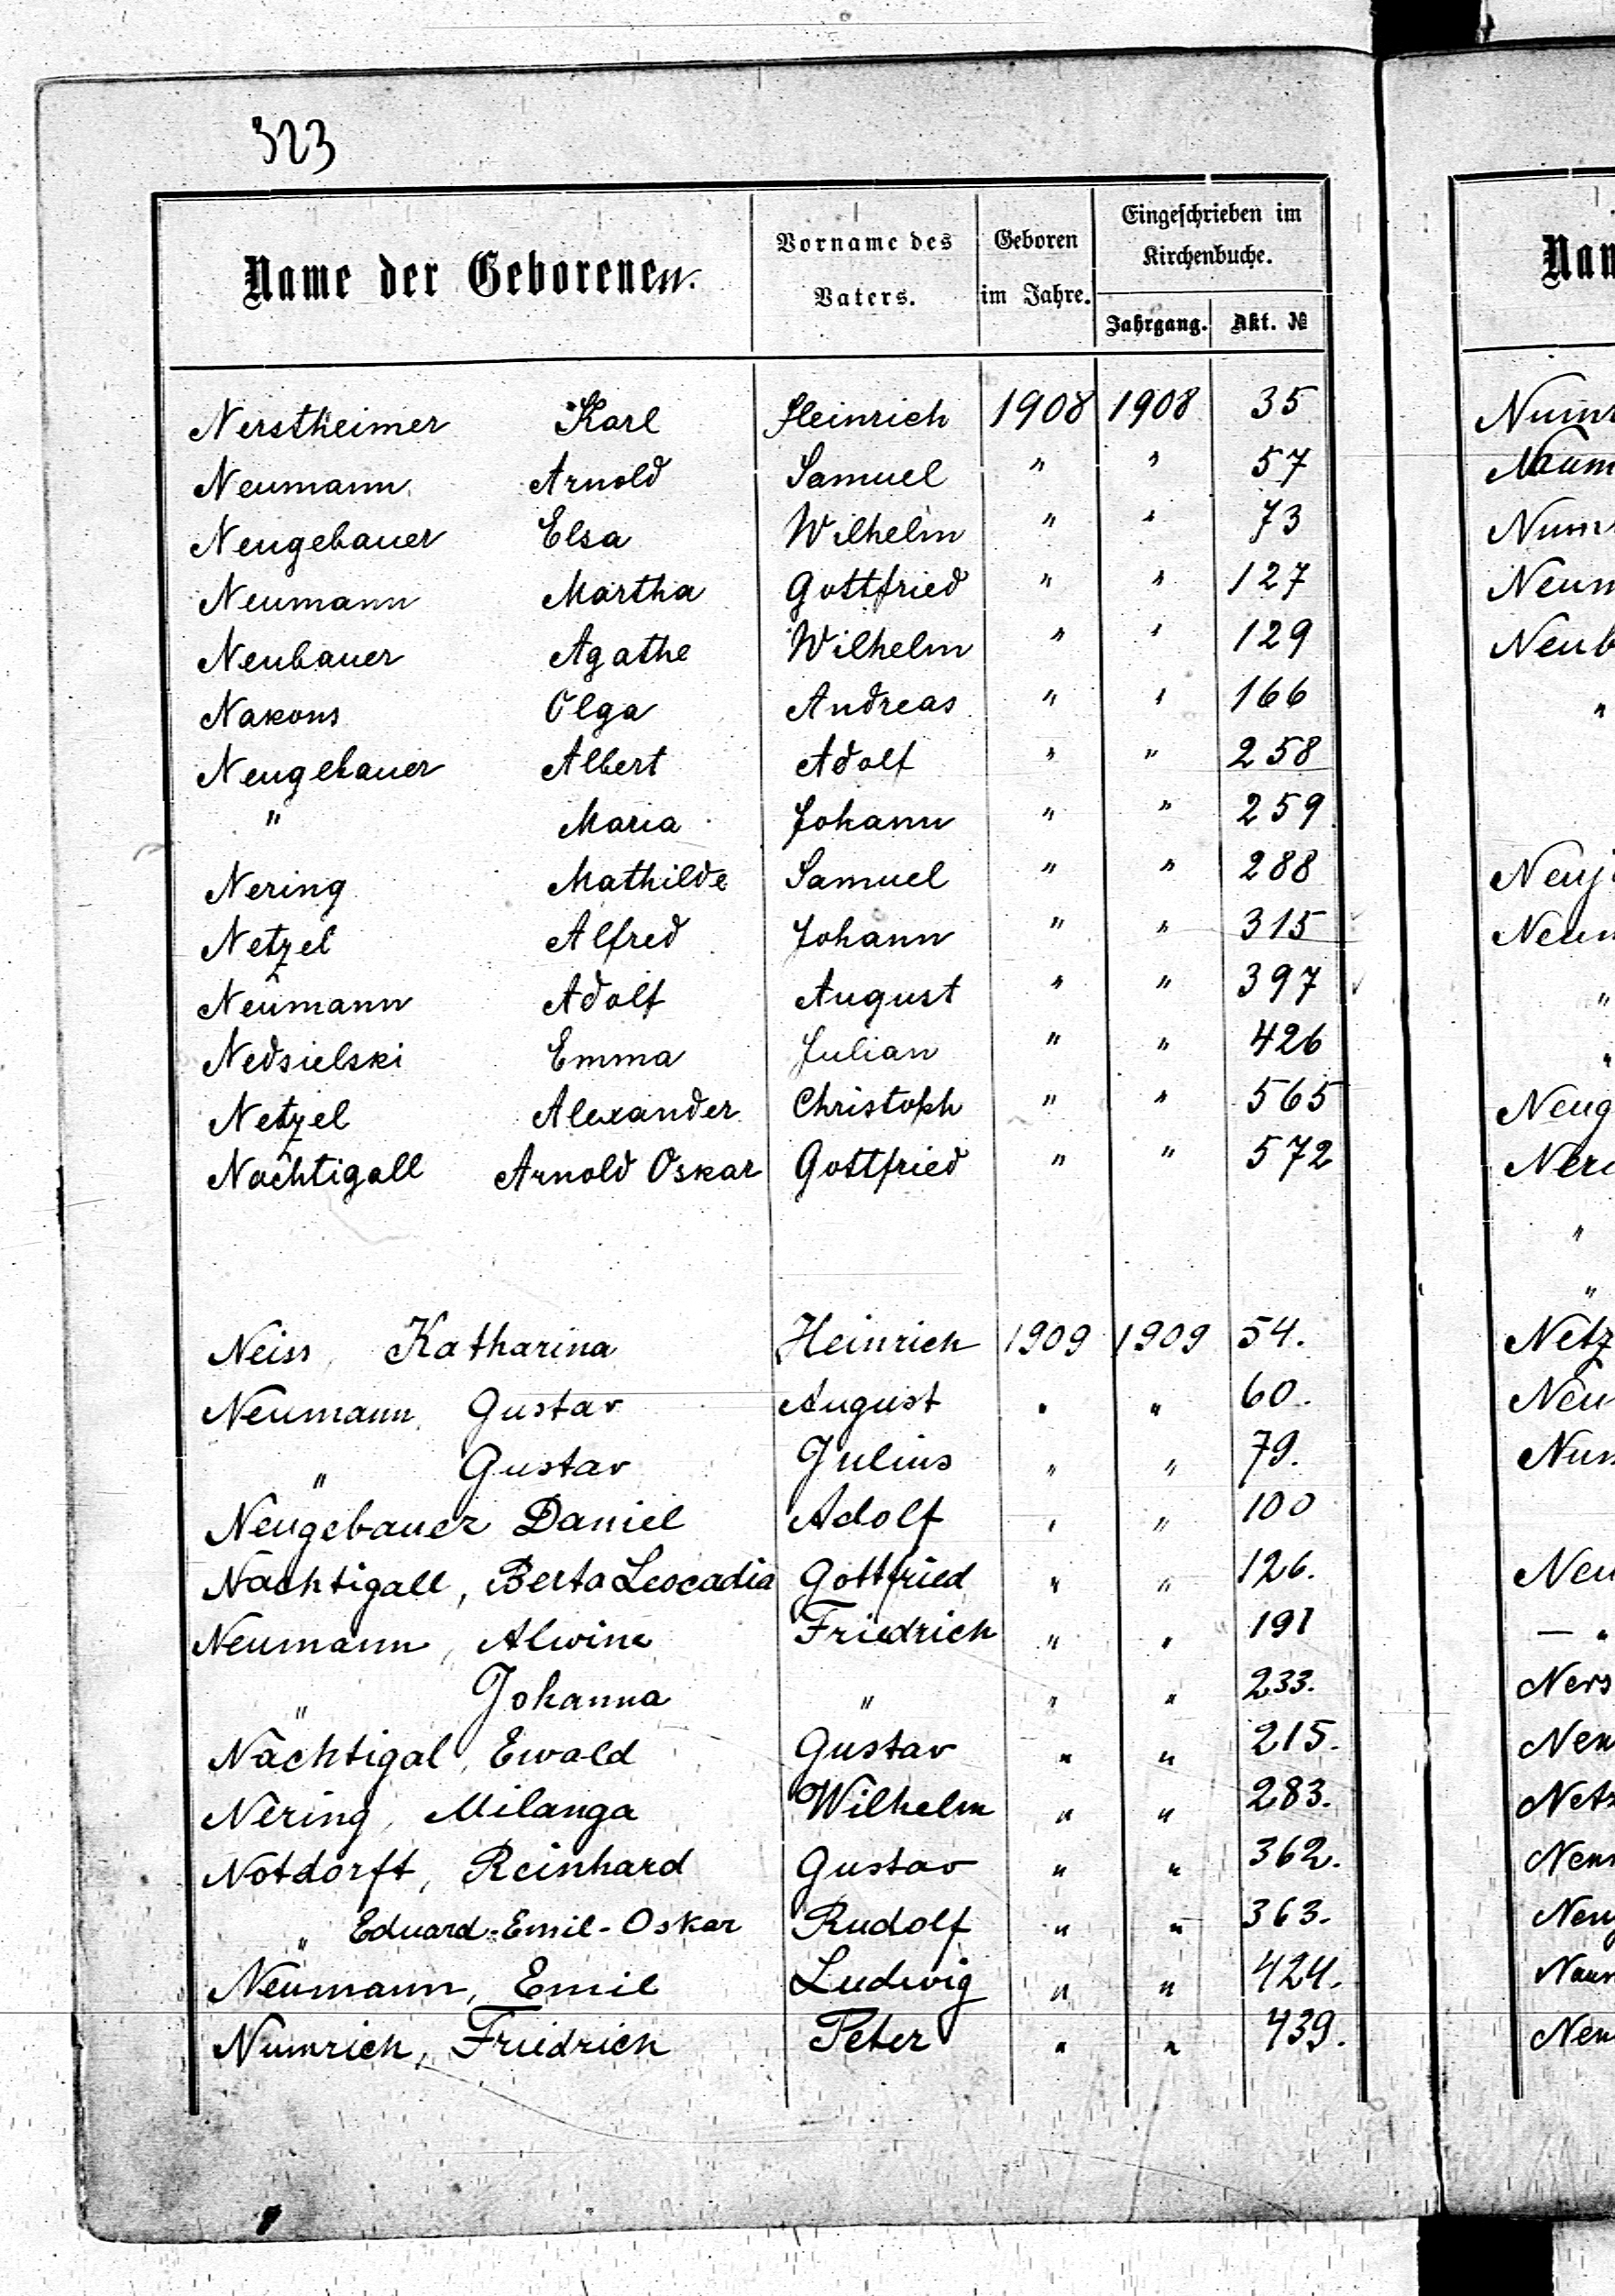 323
Name der Geborenen. Vorname des Vaters. Geboren im Jahre. Eingeschrieben im Kirchenbuche. Jahrgang. Akt. №
Nerstheimer Karl Heinrich 1908 1908 35
Neumann Arnold Samuel " " 57
Neugebauer Elsa Wilhelm " " 73
Neumann Martha Gottfried " " 127
Neubauer Agathe Wilhelm " " 129
Nakons Olga Andreas " " 166
Neugebauer Albert Adolf " " 258
" Maria Johann " " 259
Nering Mathilde Samuel " " 288
Netzel Alfred Johann " " 315
Neumann Adolf August " " 397
Nedsielski Emma Julian " " 426
Netzel Alexander Christoph " " 565
Nachtigall Arnold Oskar Gottfried " " 572
Neiss, Katharina Heinrich 1909 1909 54.
Neumann, Gustav August " " 60.
" Gustav Julius " " 79.
Neugebauer Daniel Adolf " " 100
Nachtigall, Berta Leocadia Gottfried " " 126.
Neumann, Alwine Friedrich " " 191
" Johanna " " " 233.
Nachtigal, Ewald Gustav " " 215.
Nering, Milanga Wilhelm " " 283.
Notdorft, Reinhard Gustav " " 362.
" Eduard-Emil-Oskar Rudolf " " 363.
Neumann, Emil Ludwig " " 424.
Numrich, Friedrich Peter " " 439.